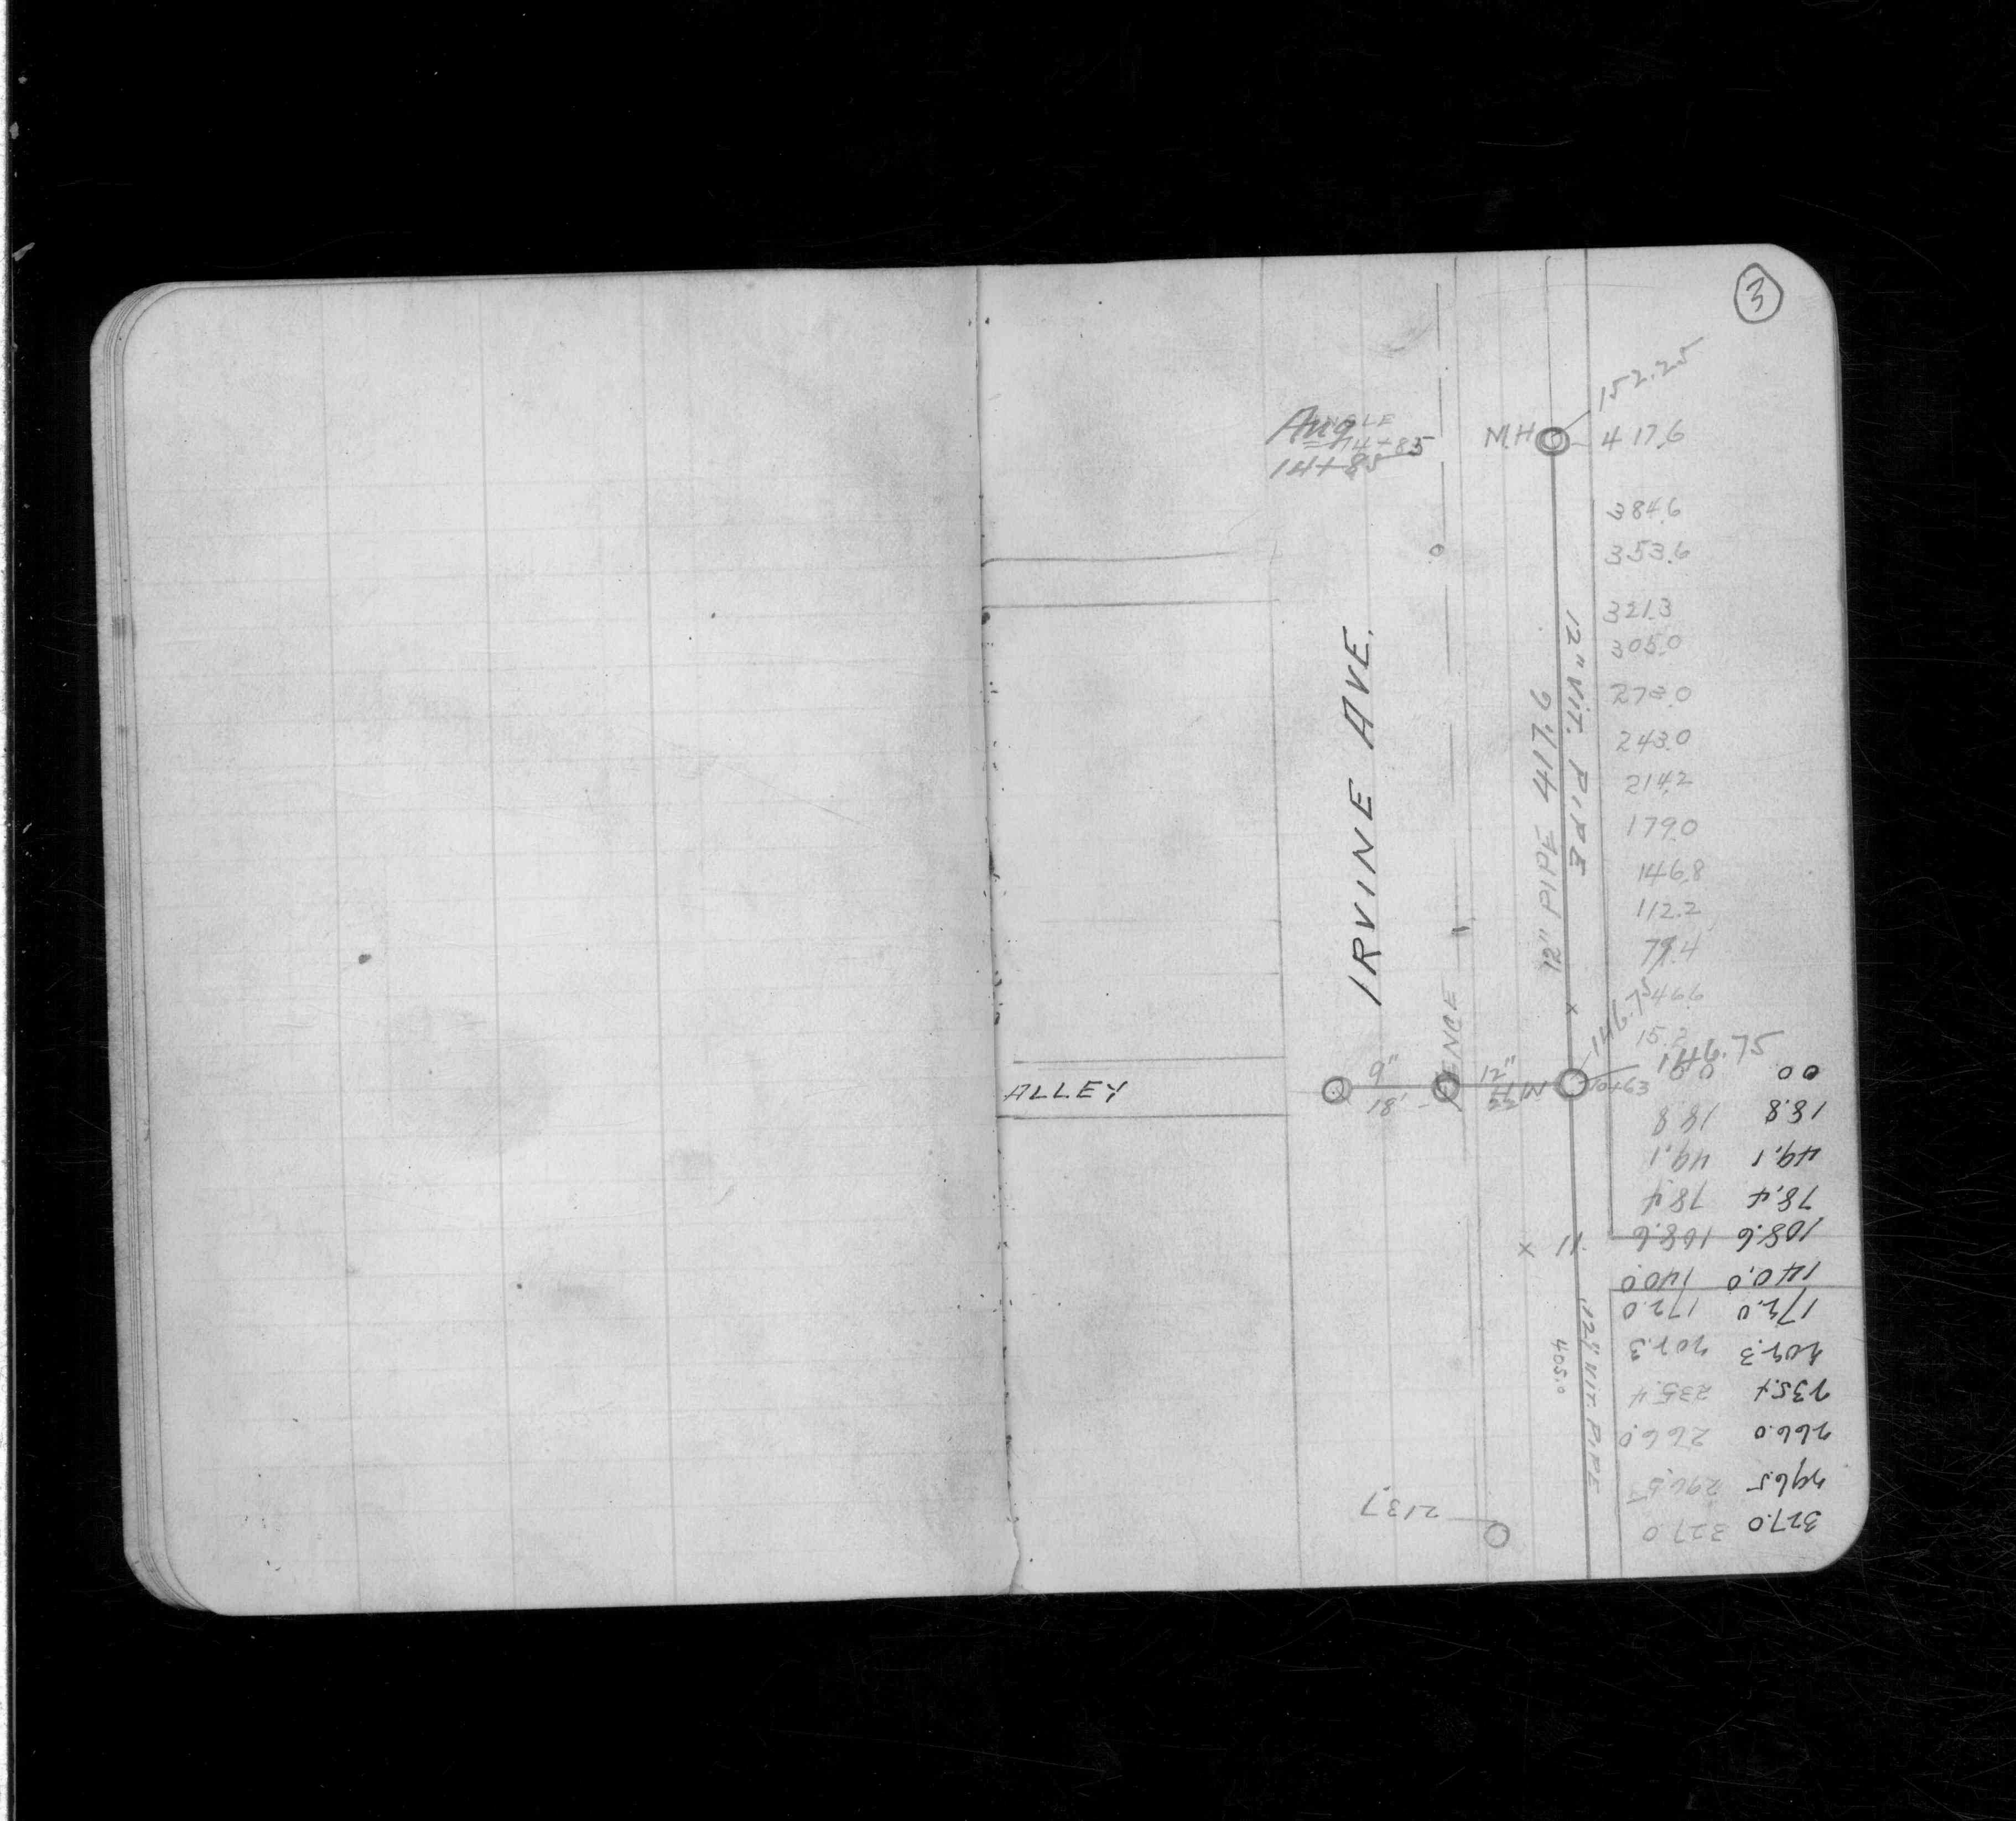 3
152.25
M.H
417.6
Ang
ANGLE
14+85
14+85
384.6
353.6
321.3
305.0
273.0
243.0
214.2
179.0
146.8
112.2
79.4
46.6
15.2
IRVINE AVE.
12" PIPE 417.6
12" VIT. PIPE
FENCE
146.75
146.75
ALLEY
9"
18'
12"
22
M.H
10+63
0.0 00
18.8 18.8
49.1 49.1
78.4 78.4
108.6 108.6
140.0 140.0
172.0 172.0
202.3 202.3
235.4 235.4
266.0 266.0
296.5 296.5
327.0 327.0
405.0
12" VIT. PIPE
213.7